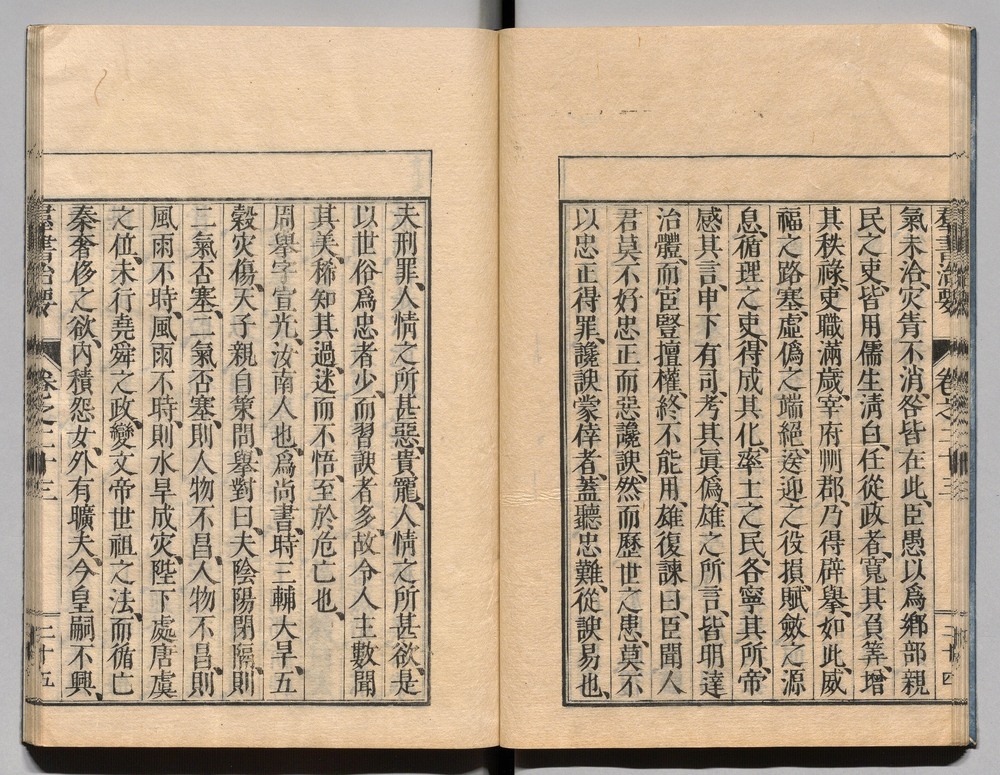 羣書治要 卷之二十三 二十四
氣未洽、灾眚不消、咎皆在此、臣愚以爲鄕部親
民之吏、皆用儒生淸白、任從政者、寬其負筭、增
其秩祿、吏職滿歲、宰府州郡、乃得辟擧、如此、威
福之路塞、虛僞之端絕、送迎之役損、賦斂之源
息、循理之吏、得成其化、率土之民、各寧其所、帝
感其言、申下有司、考其眞僞、雄之所言、皆明達
治體、而宦豎擅權、終不能用、雄復諫曰、臣聞人
君莫不好忠正而惡讒諛、然而歷世之患、莫不
以忠正得罪、讒諛蒙倖者、蓋聽忠難、從諛易也、
夫刑罪、人情之所甚惡、貴寵、人情之所甚欲、是
以世俗爲忠者少、而習諛者多、故令人主數聞
其美、稀知其過、迷而不悟、至於危亡也、
周擧字宣光、汝南人也、爲尚書、時三輔大旱、五
穀灾傷、天子親自策問、擧對曰、夫陰陽閉隔、則
二氣否塞、二氣否塞、則人物不昌、人物不昌、則
風雨不時、風雨不時、則水旱成灾、陛下處唐虞
之位、未行堯舜之政、變文帝世祖之法、而循亡
秦奢侈之欲、內積怨女、外有曠夫、今皇嗣不興、
羣書治要 卷之二十三 二十五